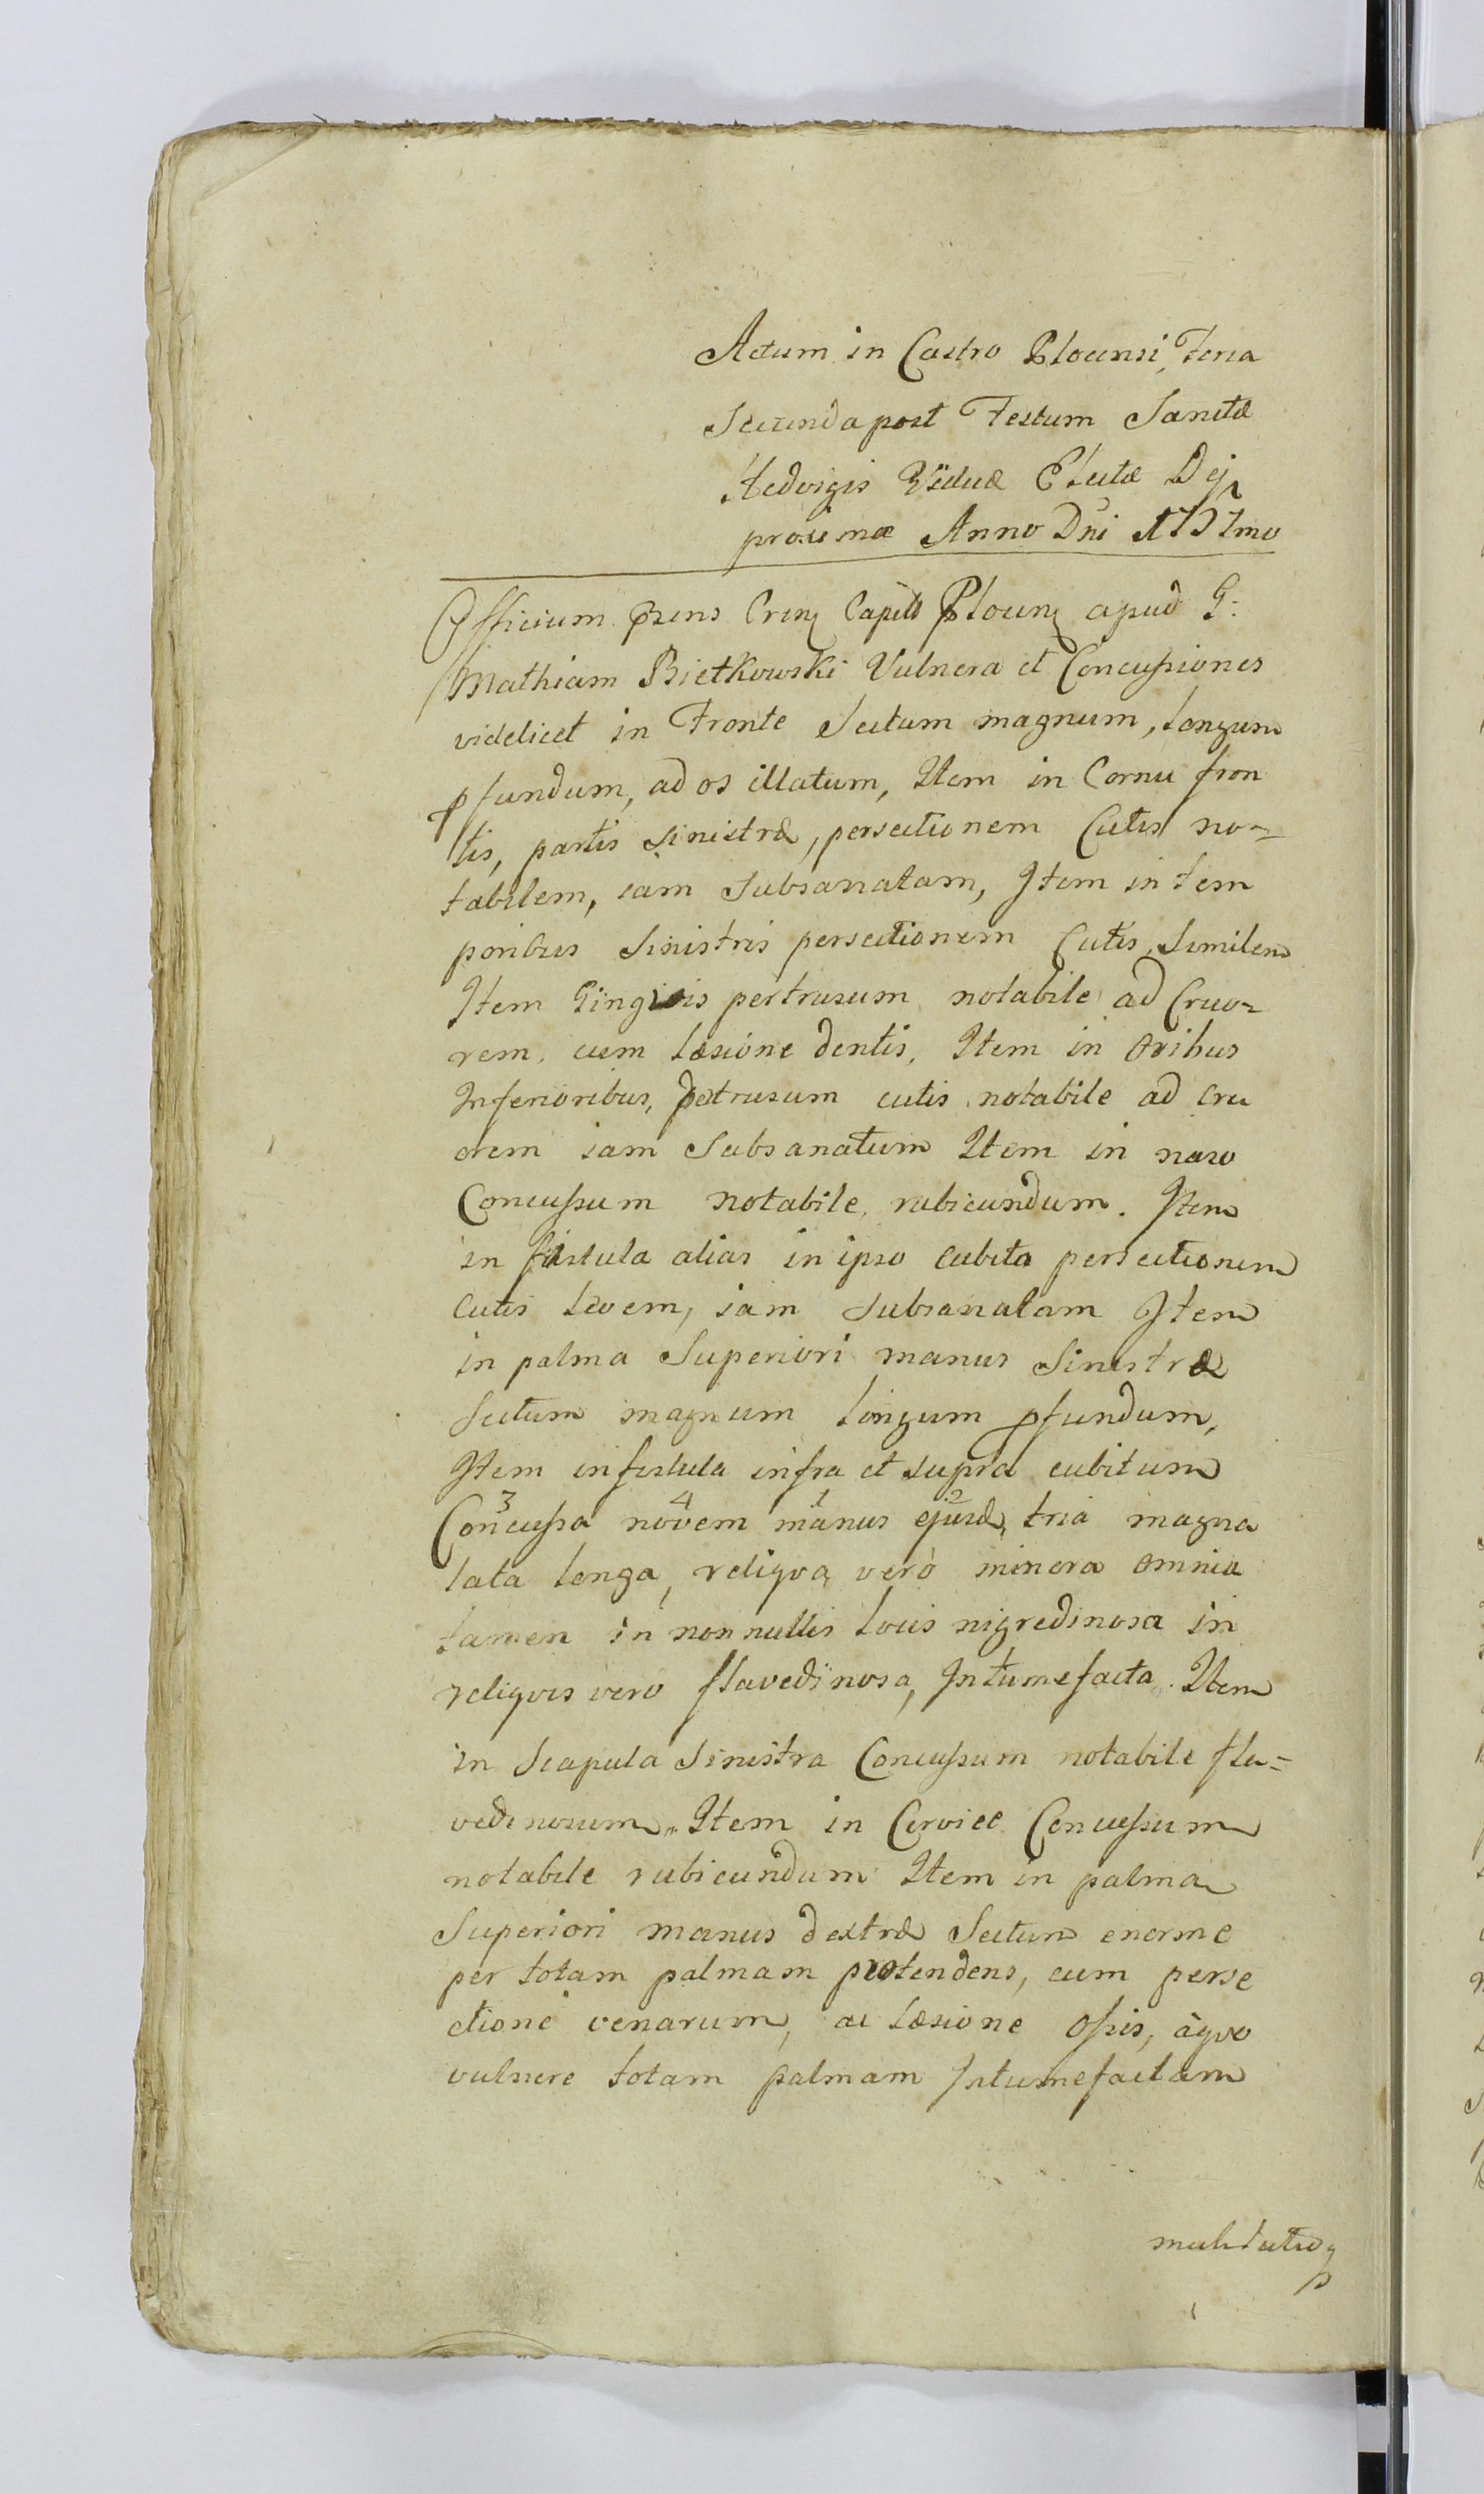 Actum in Castro Plocensi, Feria
Secunda post Festum Sanctæ
Hedvigis Viduæ Electæ Dej
proximæ Anno Dni
Officium prens Cren Capit Plocen apud G:
Mathiam Bietkowski Vulnera et Concussiones
videlicet in Fronte Sectum magnum, longum
pfundum, ad os illatum, Item in Cornu fron
tis, partis sinistræ, persectionem Cutis no-
tabilem, iam Subsanatam, Item in tem
poribus Sinistris persectionem Cutis, Similem
Item Gingivis pertrusum notabile ad Cruo-
rem, cum læsione dentis, Item in Oribus
Inferioribus, pertrusum cutis notabile ad Cru
orem iam Subsanatum Item in naso
Concussum notabile, rubicundum. Item
in fistula alias in ipso Cubito persectionem
Cutis levem, iam Subsanatam Item
in palma Superiori manus Sinistræ
Sectum magnum longum pfundum,
Item in fistula infra et supra cubitum
3 4 1 2
Concussa novem manus ejusd, tria magna
lata longa, reliqva verò minora omnia
tamen in nonnullis locis nigredinosa in
reliqvis vero flavedinosa, Intumefacta. Item
in Scapula Sinistra Concussum notabile fla-
vedinosum, Item in Cervice Concussum
notabile rubicundum Item in palma
Superiori manus dextræ Sectum enorme
per totam palmam protendens, cum perse
ctione venarum, ac læsione Ossis, àqvo
vulnere totam palmam Intumefactam